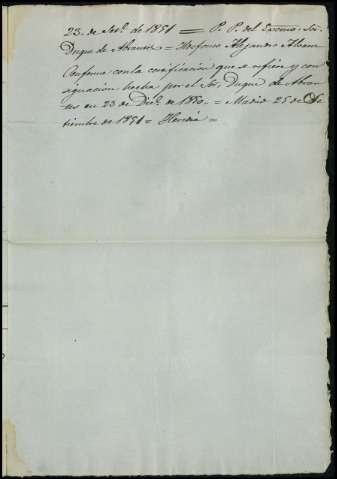 23. de Set.e de 1851 = P. P. del Excmo. Sr.
Duque de Abrantes = Ildefonso Alejandro Alvarez
Conforme con la certificacion que se refiere y con
signacion hecha por el Sr. Duque de Abran
tes en 23 de Dic.e de 1850. = Madrid 25 de Se
tiembre de 1851 = Heredia =